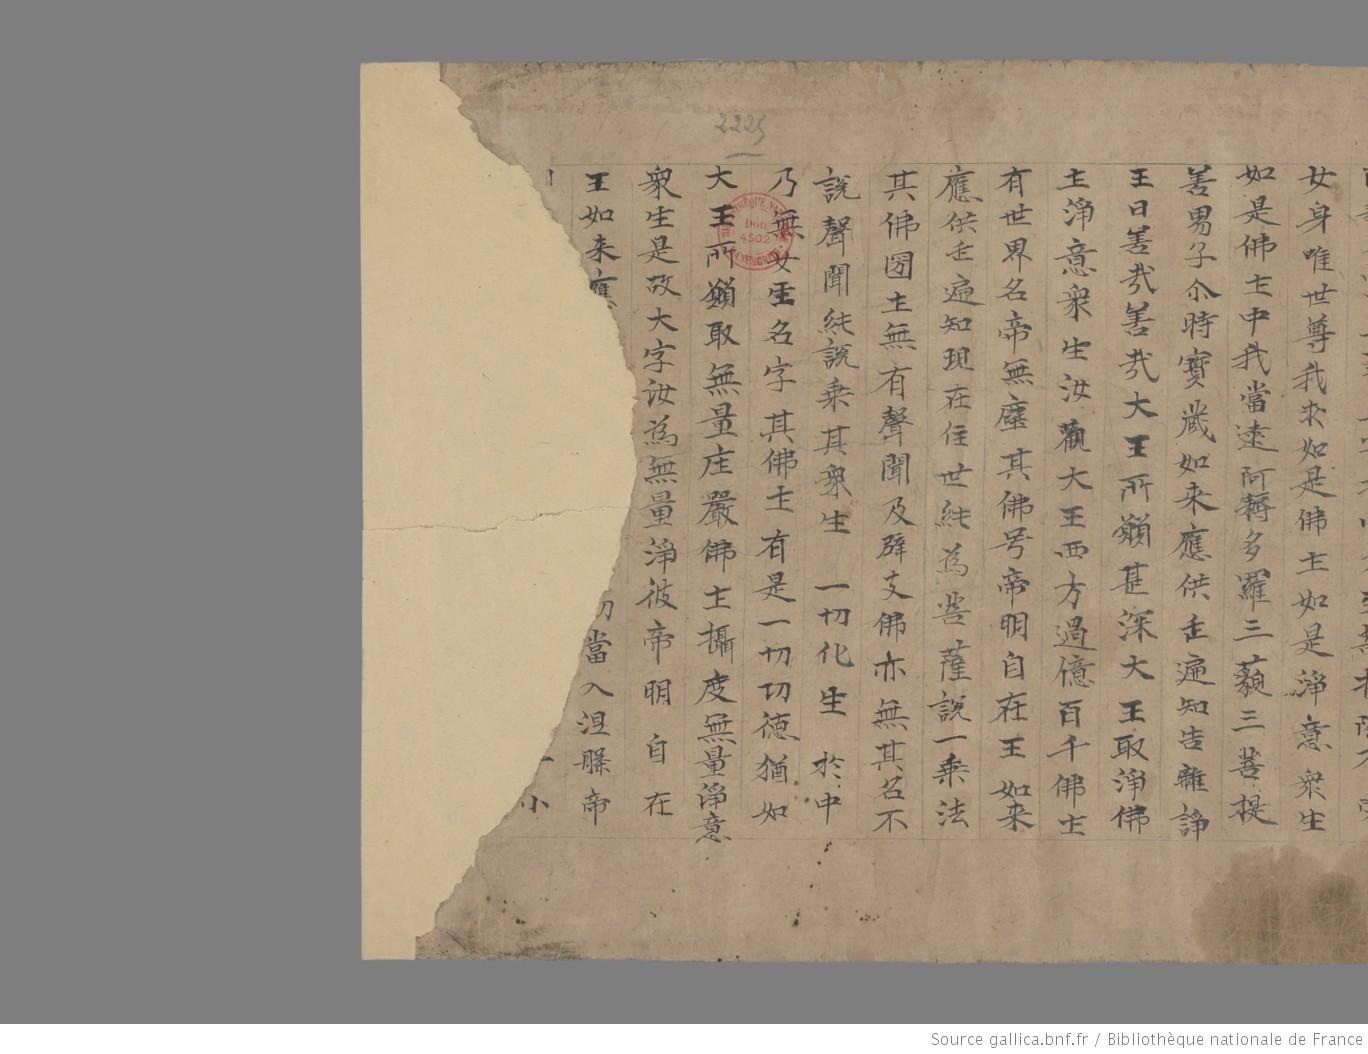 女身唯世尊我求如是佛土如是淨意衆生
如是佛土中我當逮阿耨多羅三藐三菩提
善男子尒時寶藏如来應供正遍知告離諍
王曰善哉善哉大王所願甚深大王取淨佛
土淨意衆生汝觀大王西方過億百千佛土
有世界名帝無塵其佛号帝明自在王如来
應供正遍知現在住世純為菩薩說一乗法
其佛圀土無有聲聞及辟支佛亦無其名不
說聲聞純說乗其衆生一切化生於中
乃無女名字其佛土有是一切切德猶如
大王所願取無量庄嚴佛土攝度無量淨意
衆生是故大字汝為無量淨彼帝明自在
王如来應切當入涅槃帝
一小
2225
BIBLIOTHÈQUE NATIONALE
Don
4502
MANUSCRITS
Source gallica.bnf.fr / Bibliothèque nationale de France